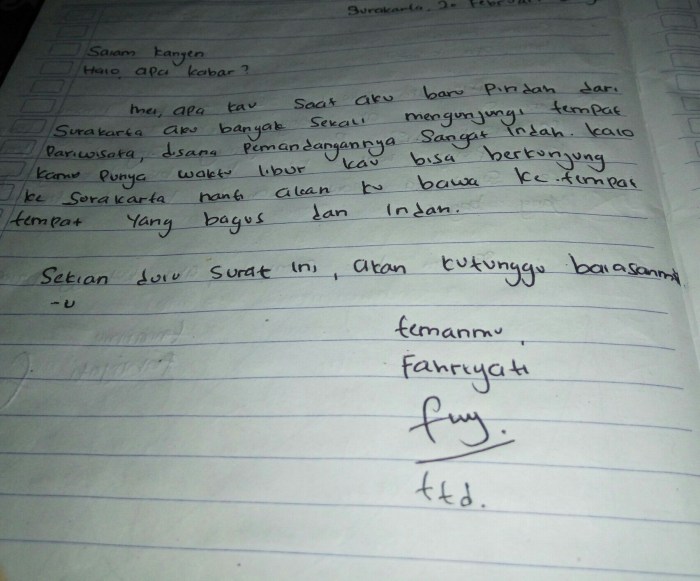 Surakarta, 20 Februari
Salam kangen
Halo, apa kabar?
mei, apa kau saat aku baru pindah dari
Surakarta aku banyak sekali mengunjungi tempat
Pariwisata, disana pemandangannya sangat indah. kalo
kamu punya waktu libur kau bisa berkunjung
ke Surakarta nanti akan ku bawa ke tempat
tempat yang bagus dan indah.
Sekian dulu surat ini, akan kutunggu balasanmu
-u
temanmu,
Fahriyati
fuy.
ttd.